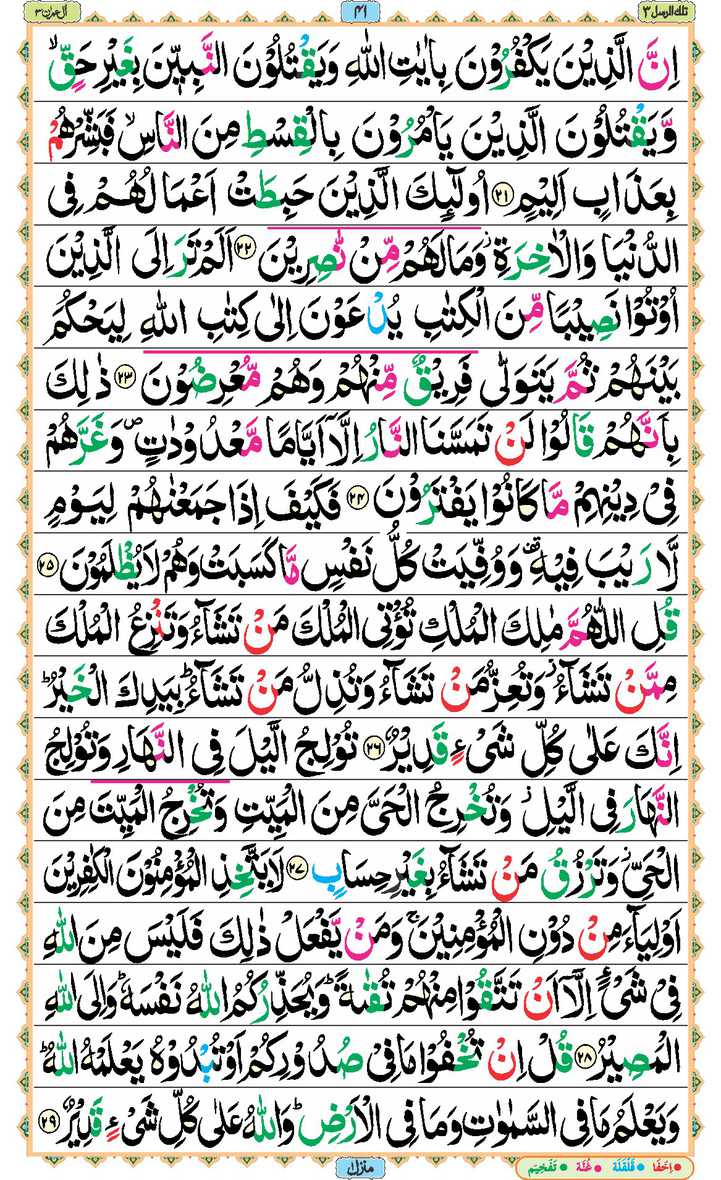 تلك الرسل ٣
٤١
اٰل عمرٰن ٣
اِنَّ الَّذِيْنَ يَكْفُرُوْنَ بِاٰيٰتِ اللّٰهِ وَيَقْتُلُوْنَ النَّبِيّٖنَ بِغَيْرِ حَقٍّ ۙ
وَّيَقْتُلُوْنَ الَّذِيْنَ يَاْمُرُوْنَ بِالْقِسْطِ مِنَ النَّاسِ ۙ فَبَشِّرْهُمْ
بِعَذَابٍ اَلِيْمٍ ﴿۲۱﴾ اُولٰٓئِكَ الَّذِيْنَ حَبِطَتْ اَعْمَالُهُمْ فِى
الدُّنْيَا وَالْاٰخِرَةِ ۫ وَمَا لَهُمْ مِّنْ نّٰصِرِيْنَ ﴿۲۲﴾ اَلَمْ تَرَ اِلَى الَّذِيْنَ
اُوْتُوْا نَصِيْبًا مِّنَ الْكِتٰبِ يُدْعَوْنَ اِلٰى كِتٰبِ اللّٰهِ لِيَحْكُمَ
بَيْنَهُمْ ثُمَّ يَتَوَلّٰى فَرِيْقٌ مِّنْهُمْ وَهُمْ مُّعْرِضُوْنَ ﴿۲۳﴾ ذٰلِكَ
بِاَنَّهُمْ قَالُوْا لَنْ تَمَسَّنَا النَّارُ اِلَّاۤ اَيَّامًا مَّعْدُوْدٰتٍ ۪ وَغَرَّهُمْ
فِىْ دِيْنِهِمْ مَّا كَانُوْا يَفْتَرُوْنَ ﴿۲۴﴾ فَكَيْفَ اِذَا جَمَعْنٰهُمْ لِيَوْمٍ
لَّا رَيْبَ فِيْهِ ۫ وَوُفِّيَتْ كُلُّ نَفْسٍ مَّا كَسَبَتْ وَهُمْ لَا يُظْلَمُوْنَ ﴿۲۵﴾
قُلِ اللّٰهُمَّ مٰلِكَ الْمُلْكِ تُؤْتِى الْمُلْكَ مَنْ تَشَآءُ وَتَنْزِعُ الْمُلْكَ
مِمَّنْ تَشَآءُ ۫ وَتُعِزُّ مَنْ تَشَآءُ وَتُذِلُّ مَنْ تَشَآءُ ؕ بِيَدِكَ الْخَيْرُ ؕ
اِنَّكَ عَلٰى كُلِّ شَىْءٍ قَدِيْرٌ ﴿۲۶﴾ تُوْلِجُ الَّيْلَ فِى النَّهَارِ وَتُوْلِجُ
النَّهَارَ فِى الَّيْلِ ۫ وَتُخْرِجُ الْحَىَّ مِنَ الْمَيِّتِ وَتُخْرِجُ الْمَيِّتَ مِنَ
الْحَىِّ ۫ وَتَرْزُقُ مَنْ تَشَآءُ بِغَيْرِ حِسَابٍ ﴿۲۷﴾ لَا يَتَّخِذِ الْمُؤْمِنُوْنَ الْكٰفِرِيْنَ
اَوْلِيَآءَ مِنْ دُوْنِ الْمُؤْمِنِيْنَ ۚ وَمَنْ يَّفْعَلْ ذٰلِكَ فَلَيْسَ مِنَ اللّٰهِ
فِىْ شَىْءٍ اِلَّاۤ اَنْ تَتَّقُوْا مِنْهُمْ تُقٰىةً ؕ وَيُحَذِّرُكُمُ اللّٰهُ نَفْسَهٗ ؕ وَاِلَى اللّٰهِ
الْمَصِيْرُ ﴿۲۸﴾ قُلْ اِنْ تُخْفُوْا مَا فِىْ صُدُوْرِكُمْ اَوْ تُبْدُوْهُ يَعْلَمْهُ اللّٰهُ ؕ
وَيَعْلَمُ مَا فِى السَّمٰوٰتِ وَمَا فِى الْاَرْضِ ؕ وَاللّٰهُ عَلٰى كُلِّ شَىْءٍ قَدِيْرٌ ﴿۲۹﴾
منزل
اِخفَا قَلْقَلَة غُنَّة تَفْخِيْم